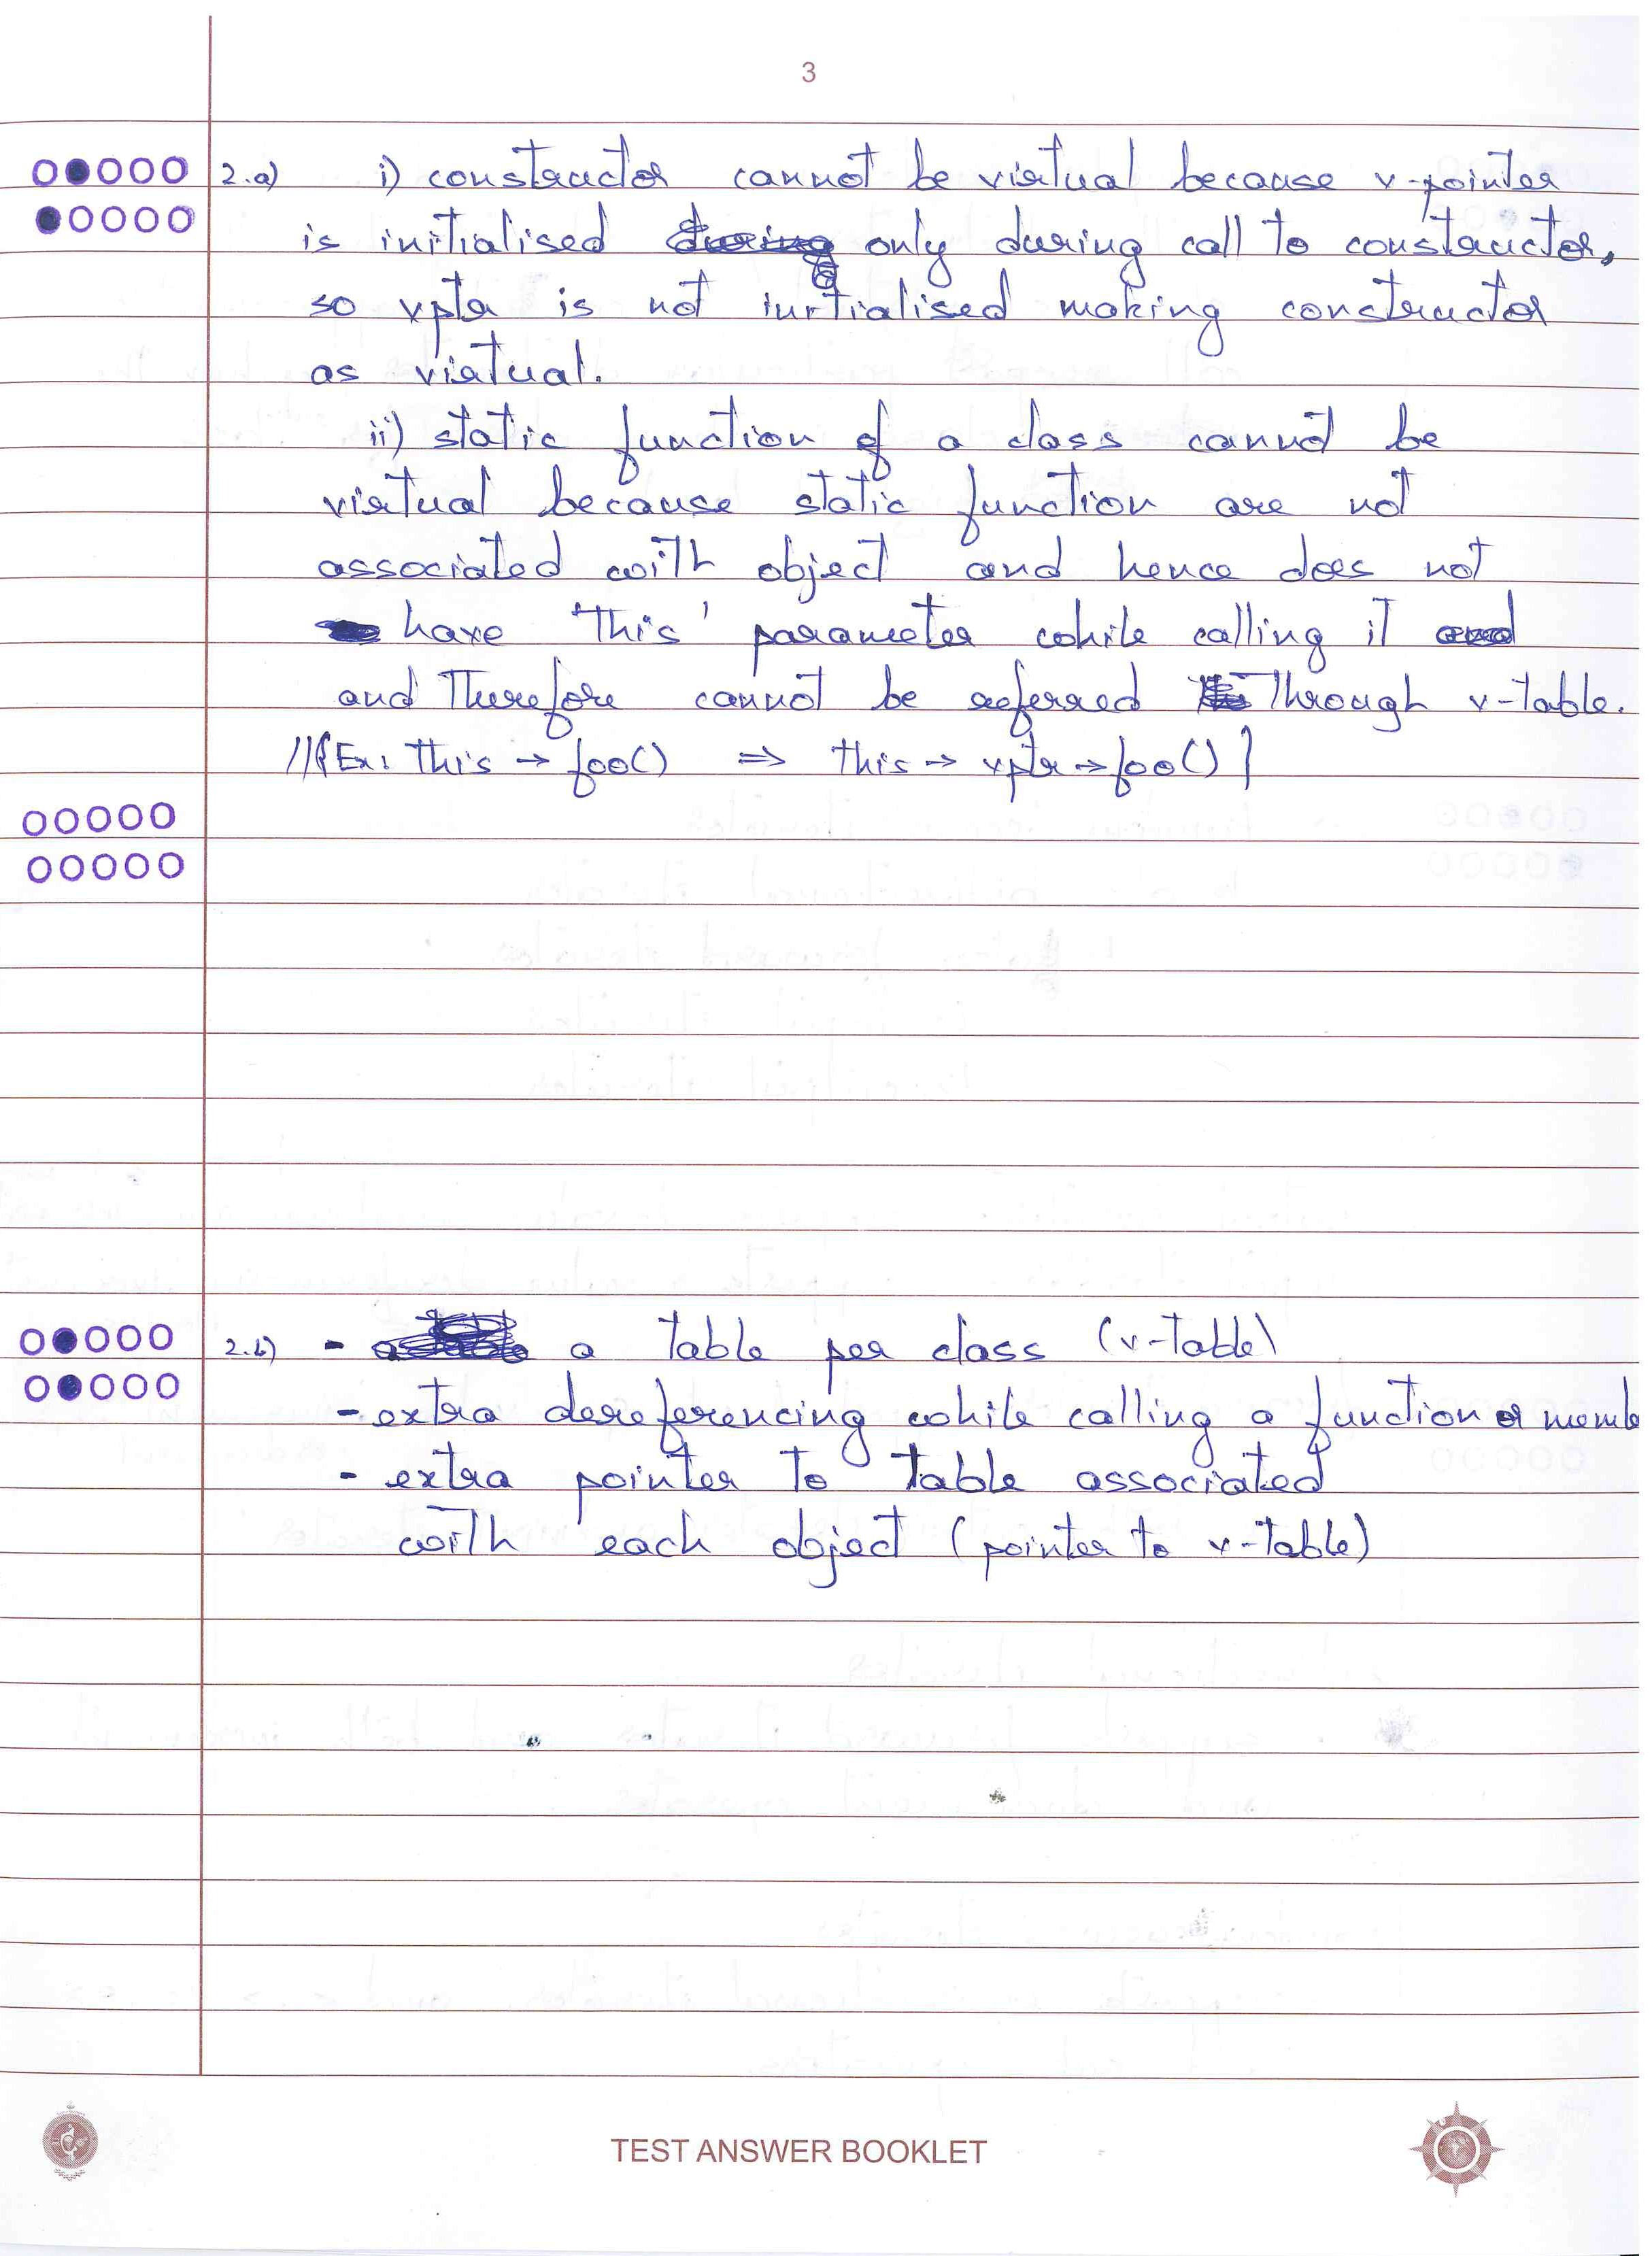 3
2.a) i) constructor cannot be virtual because v-pointer
is initialised only during call to constructor,
so vptr is not initialised making constructor
as virtual.
ii) static function of a class cannot be
virtual because static function are not
associated with object and hence does not
have 'this' parameter while calling it
and therefore cannot be referred through v-table.
//{Ex: this → foo() ⇒ this → vptr → foo()}
2.b) - a table per class (v-table)
- extra dereferencing while calling a function or memb
- extra pointer to table associated
with each object (pointer to v-table)
TEST ANSWER BOOKLET